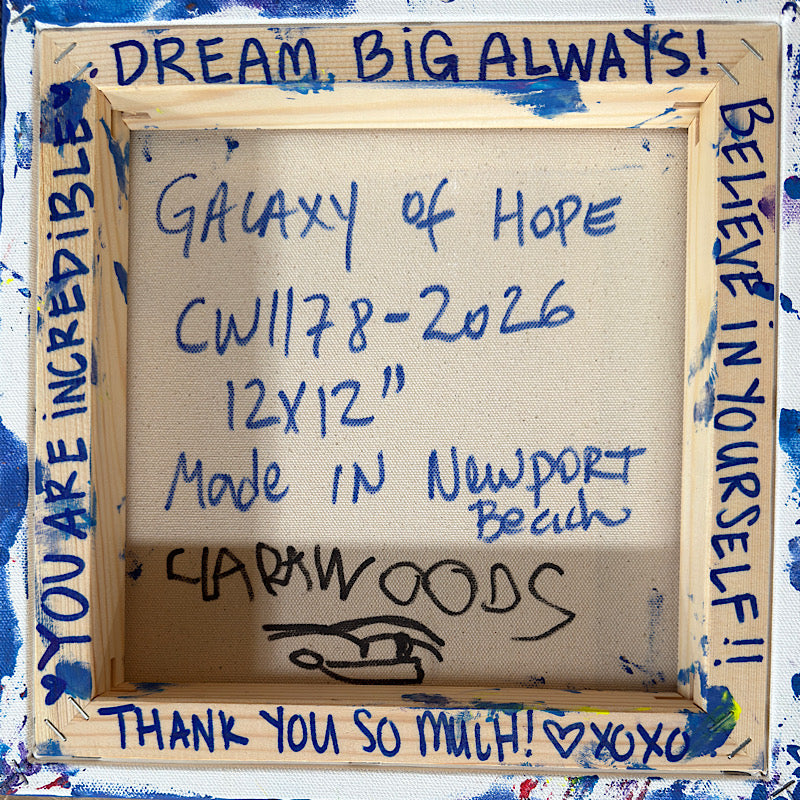 DREAM BiG ALWAYS!
YOU ARE iNCREDiBLE
BELiEVE iN YOURSELF!!
GALAXY of HOPE
CW1178-2026
12X12"
Made IN NEWPORT
Beach
CLARKWOODS
THANK YOU SO MUCH! ♡ XOXO